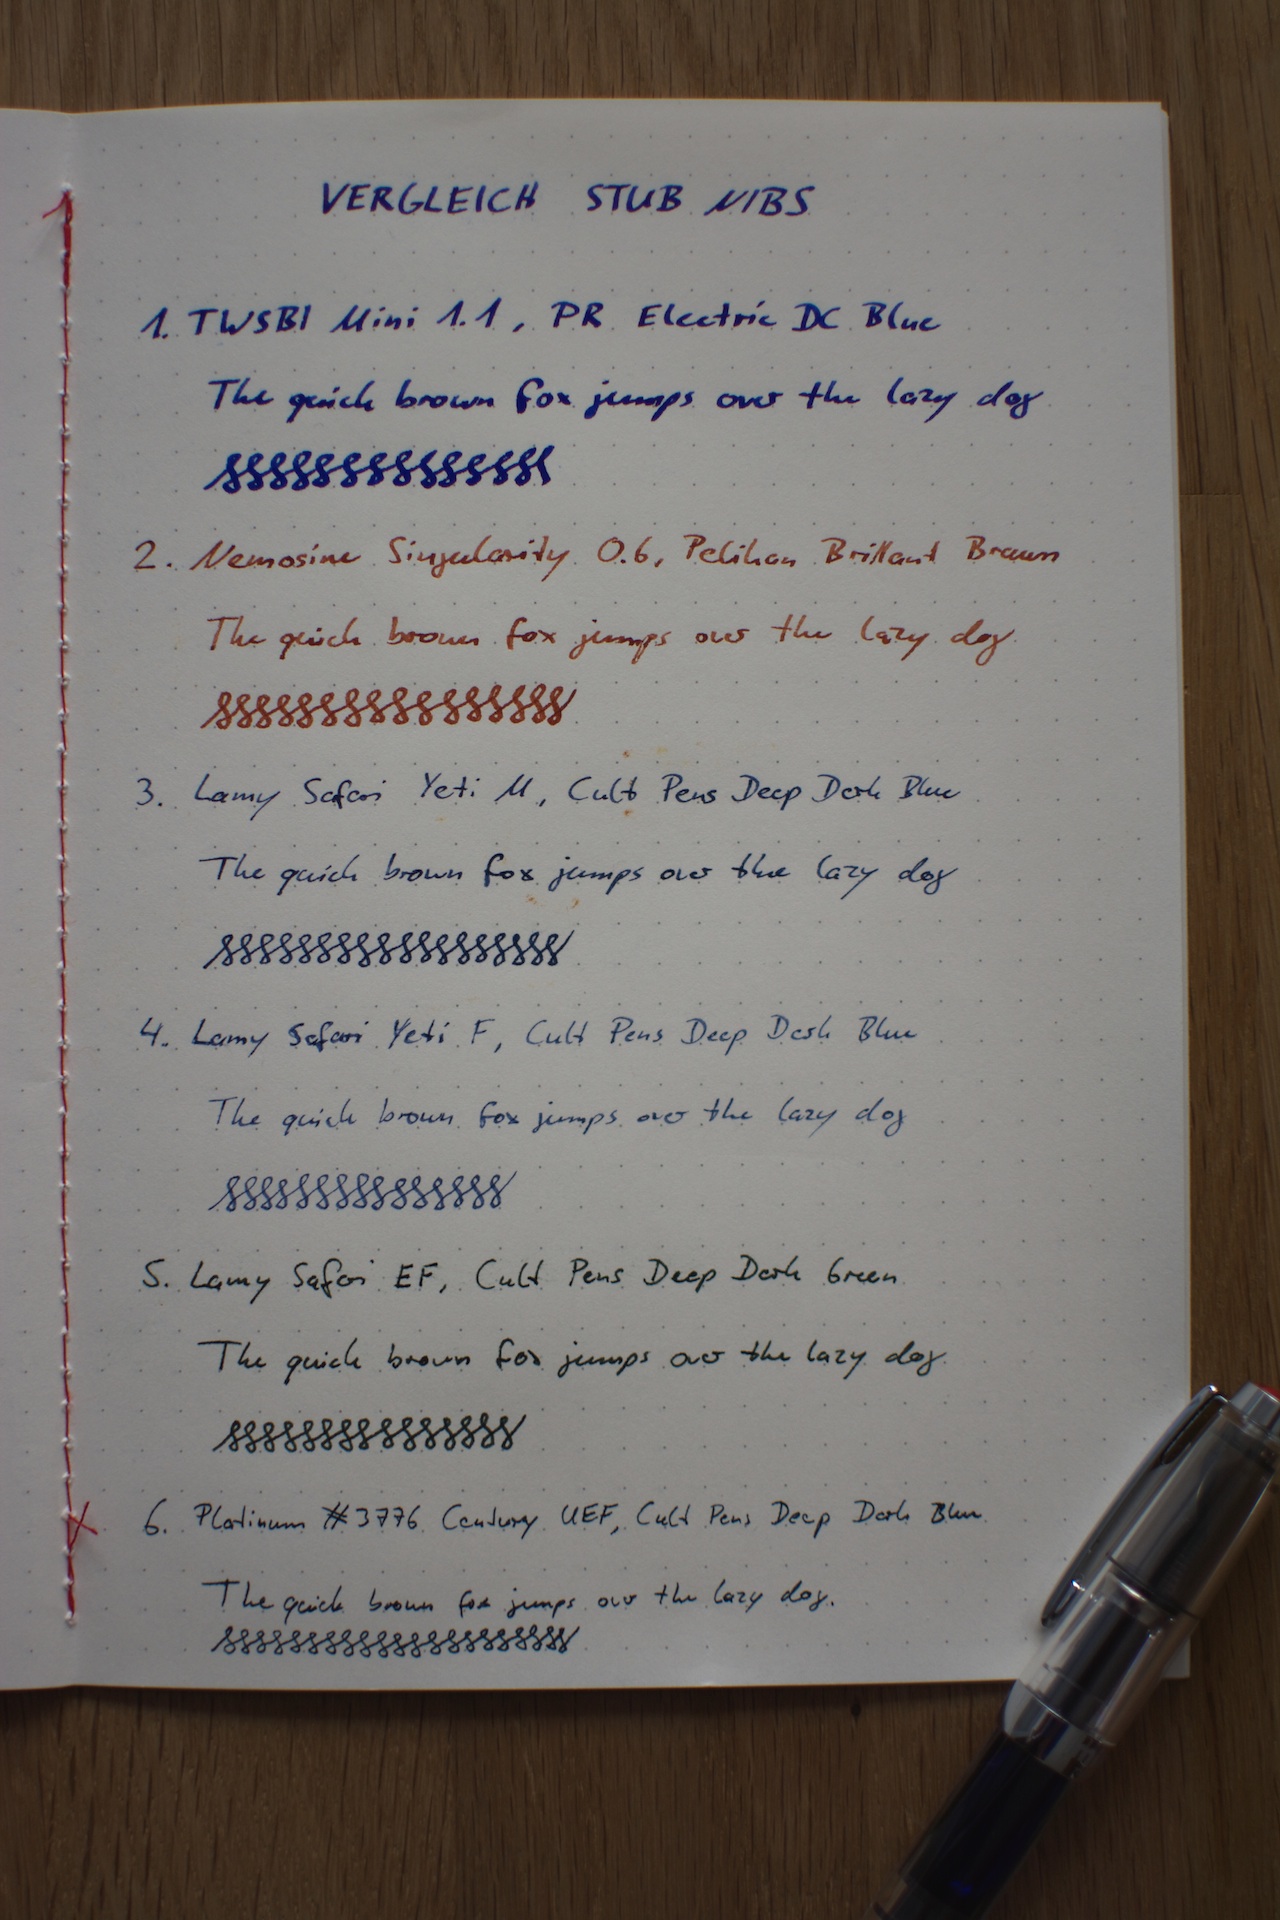 VERGLEICH STUB NIBS
1. TWSBI Mini 1.1, PR Electric DC Blue
The quick brown fox jumps over the lazy dog
2. Nemosine Singularity 0.6, Pelikan Brillant Braun
The quick brown fox jumps over the lazy dog
3. Lamy Safari Yeti M, Cult Pens Deep Dark Blue
The quick brown fox jumps over the lazy dog
4. Lamy Safari Yeti F, Cult Pens Deep Dark Blue
The quick brown fox jumps over the lazy dog
5. Lamy Safari EF, Cult Pens Deep Dark Green
The quick brown fox jumps over the lazy dog
6. Platinum #3776 Century UEF, Cult Pens Deep Dark Blue
The quick brown fox jumps over the lazy dog.